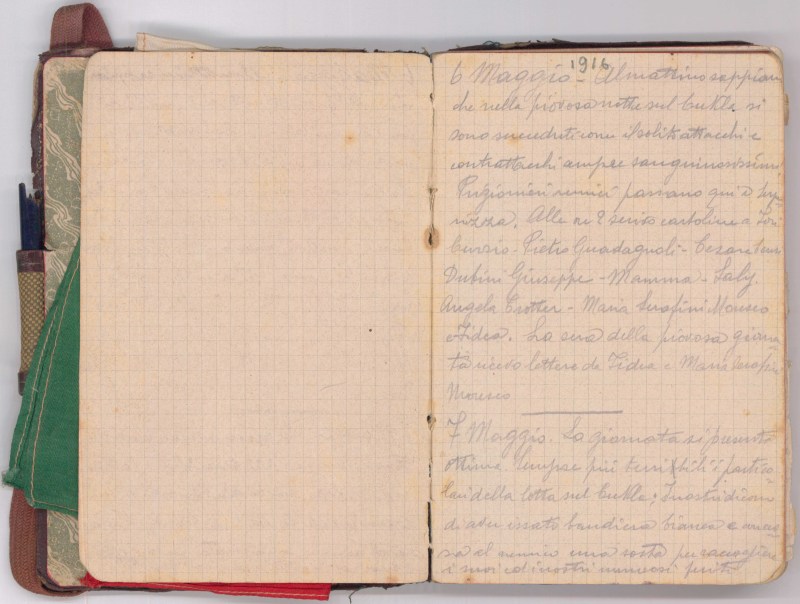 6 Maggio 1916 - Al mattino sappiam
che nella piovosa notte sul Cukla si
sono succeduti con i soliti attacchi e
contrattacchi sempre sanguinosissimi
Prigionieri nemici passano qui a
Alle ore 2 scrivo cartoline a
- Pietro Guadagnoli -
Dubini Giuseppe - Mamma - Laly.
Angela Trotter - Maria Serafini Moresco
Fidea. La sera della piovosa giorna
ta ricevo lettere da Fidea e Maria Serafini
Moresco
7 Maggio. La giornata si presenta
ottima. Sempre più terribili i partico
lari della lotta sul Cukla; I nostri dicon
di aver issato bandiera bianca e
sa al nemico una sosta per raccogliere
i suoi ed i nostri numerosi feriti